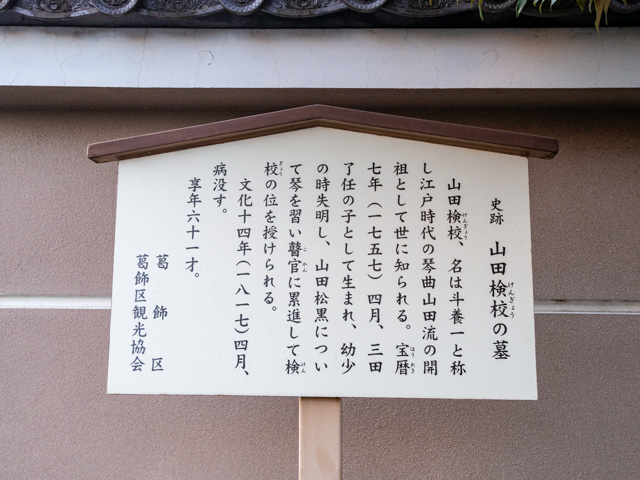 史跡 山田検校の墓
山田検校、名は斗養一と称
し江戸時代の琴曲山田流の開
祖として世に知られる。宝暦
七年（一七五七）四月、三田
了任の子として生まれ、幼少
の時失明し、山田松黒につい
て琴を習い瞽官に累進して検
校の位を授けられる。
文化十四年（一八一七）四月、
病没す。
享年六十一才。
葛飾区
葛飾区観光協会